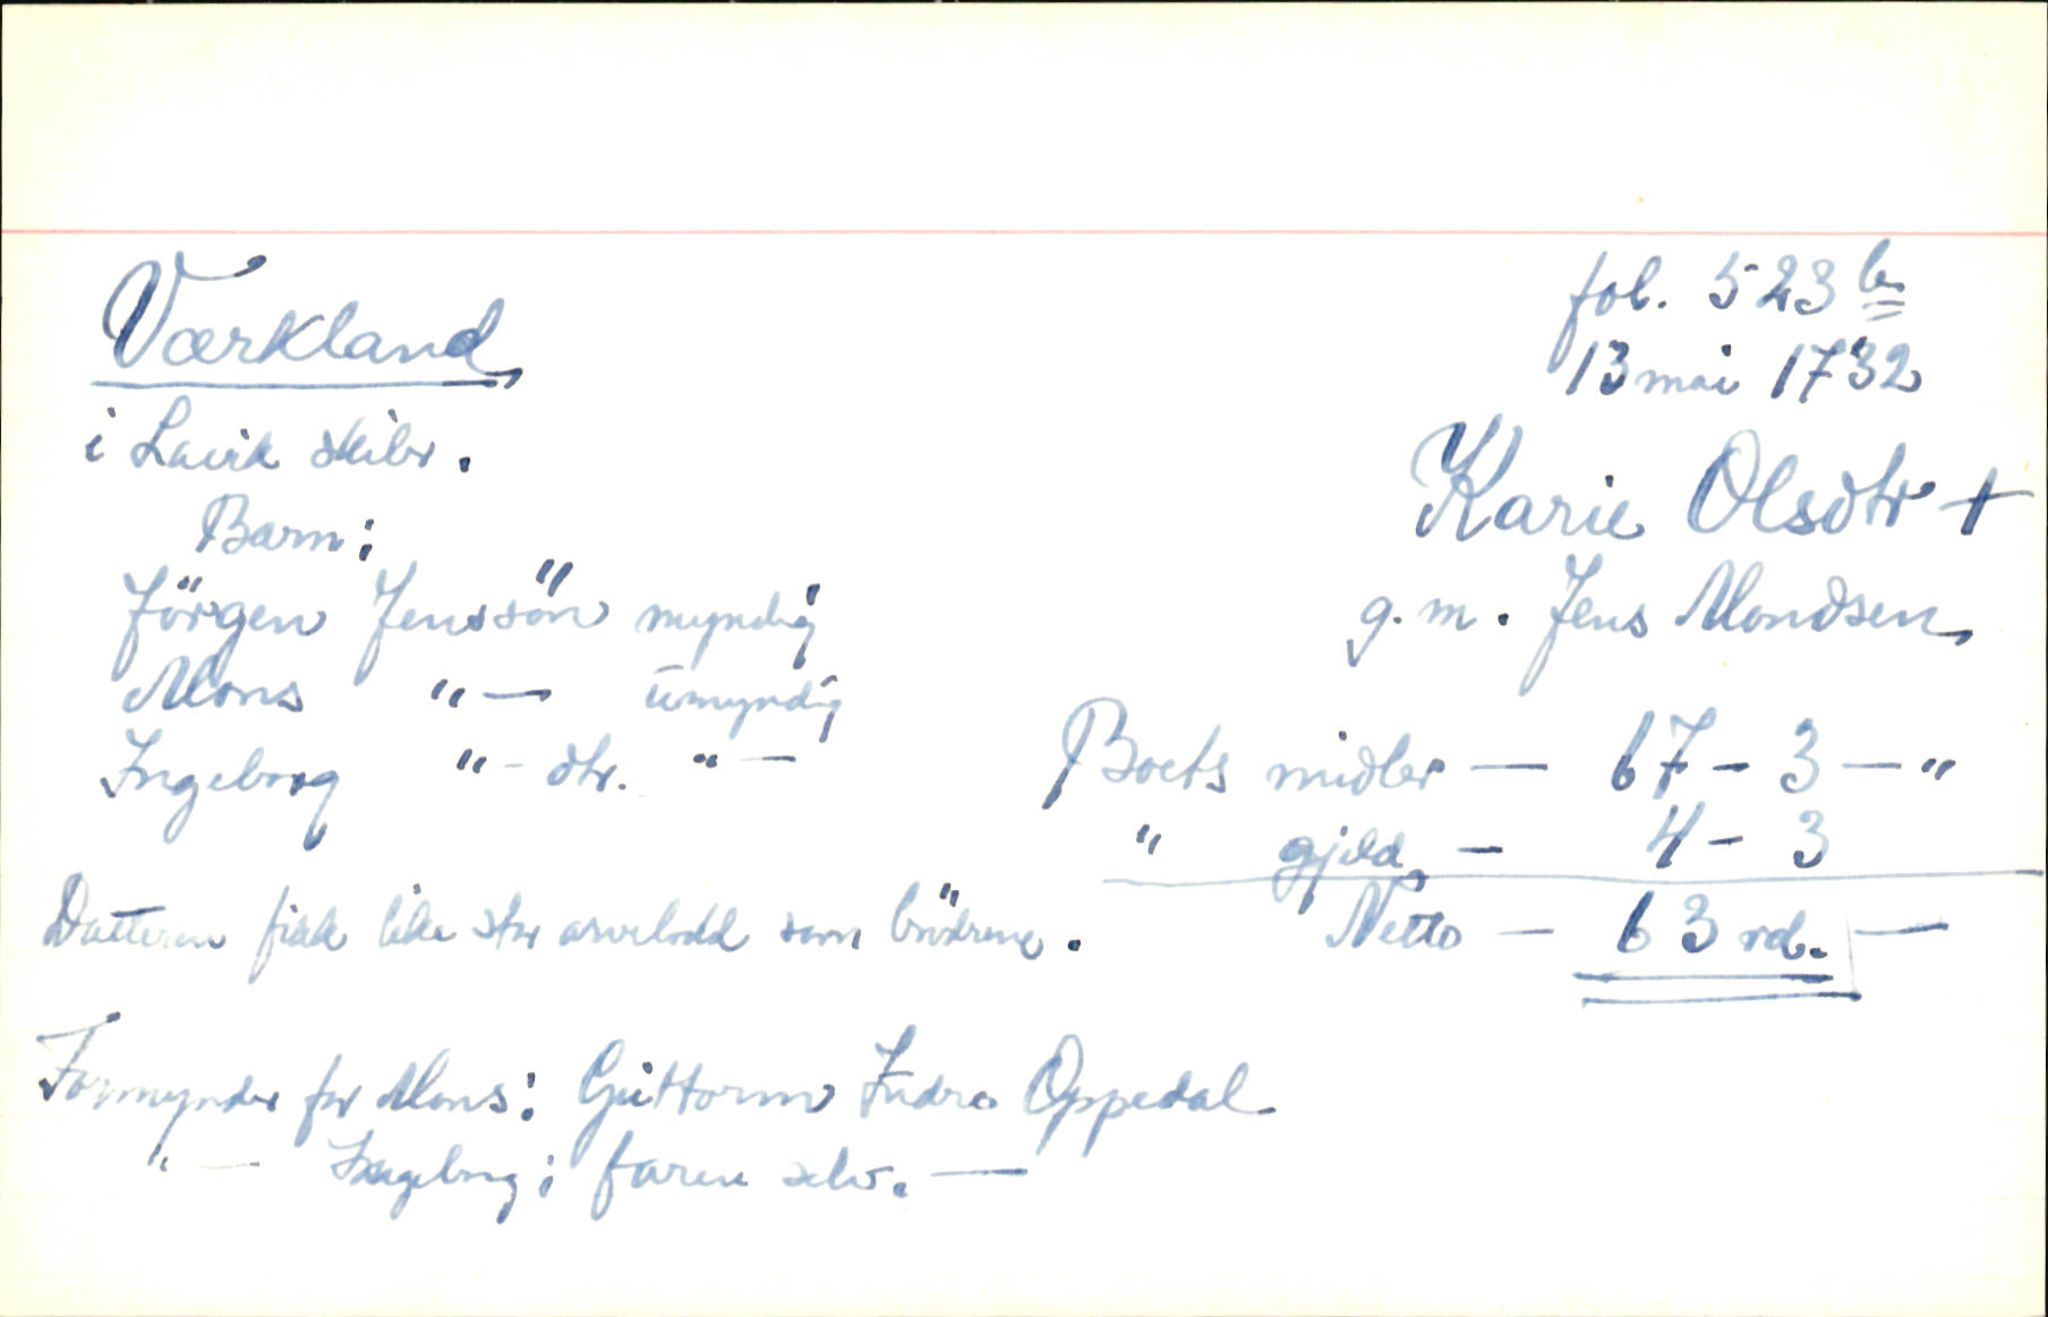 Værkland
i Lavik skibr.
fol. 523 b
13 mai 1732
Karie Olsdtr +
g. m. Jens Monsen
Barn:
Jörgen Jenssön myndig
Mons "— umyndig
Ingeborg "- dtr. "—
Boets midler — 67 - 3 — "
" gjeld — 4 - 3
Netto — 63 rd. —
Datteren fikk like stor arvelodd som brödrene.
Formynder for Mons: Guttorm Indre Oppedal
"— Ingeborg: faren selv. —